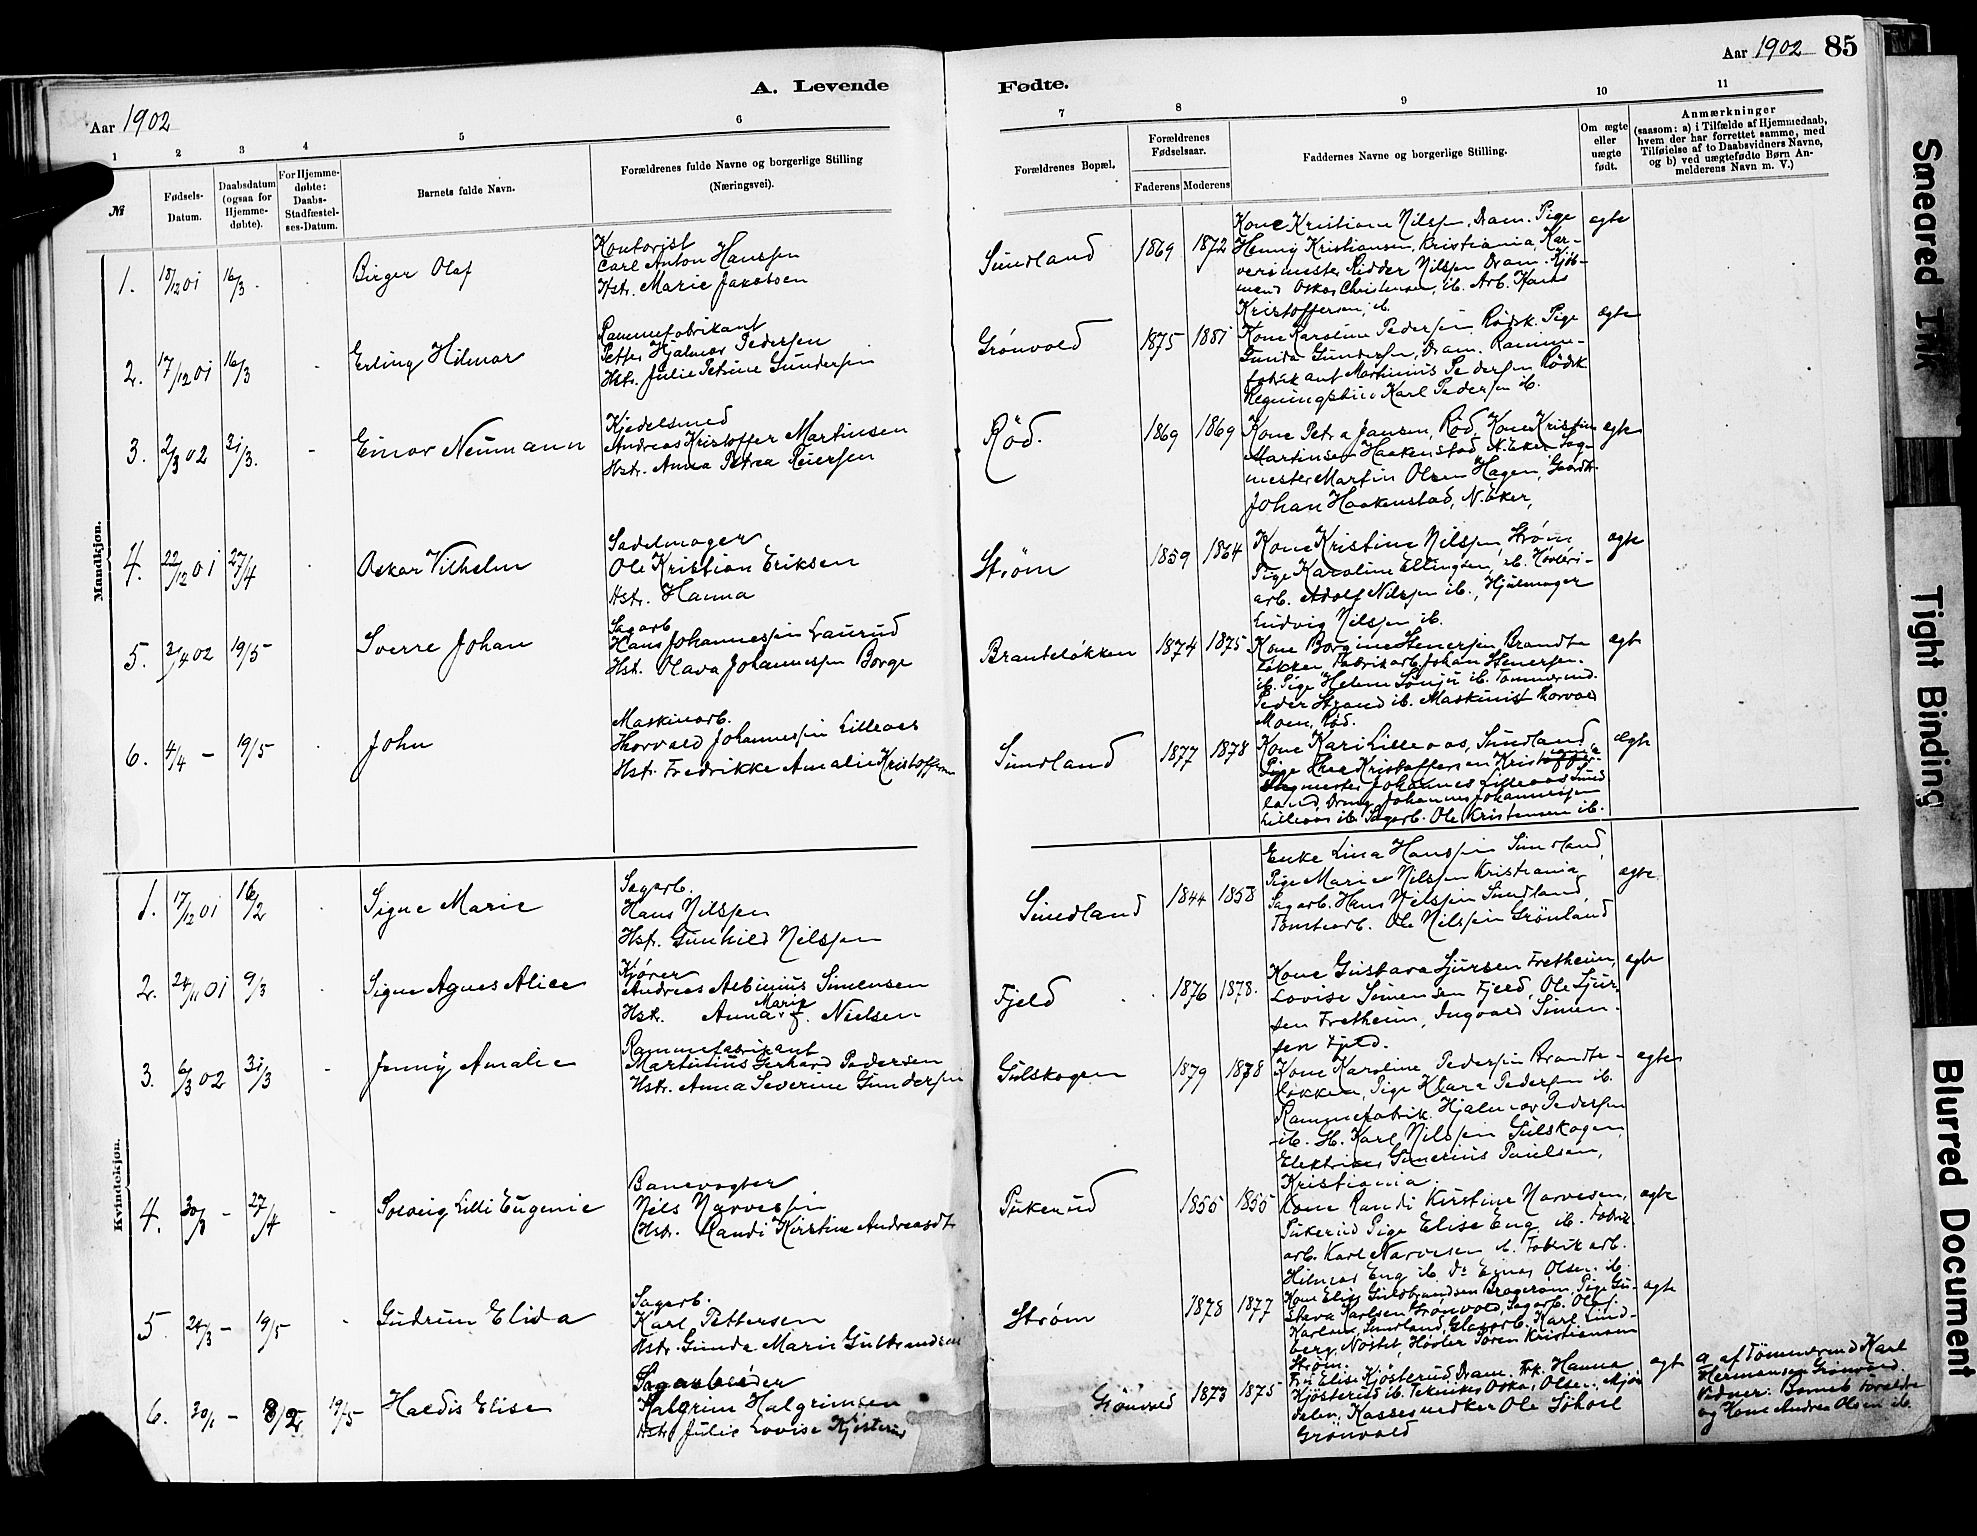 Aar 1902
A. Levende
Fødte.
Aar 1902 85
1 2 3 4 5 6 7 8 9 10 11
№
Fødsels-
Datum.
Daabsdatum
(ogsaa for
Hjemme-
døbte).
For Hjemme-
døbte:
Daabs-
Stadfæstel-
ses-Datum.
Barnets fulde Navn.
Forældrenes fulde Navne og borgerlige Stilling
(Næringsvei).
Forældrenes Bopæl.
Forældrenes
Fødselsaar.
Faderens Moderens
Faddernes Navne og borgerlige Stilling.
Om ægte
eller
uægte
født.
Anmærkninger
(saasom: a) i Tilfælde af Hjemmedaab,
hvem der har forrettet samme, med
Tilføielse af to Daabsvidners Navne,
og b) ved uægtefødte Børn An-
melderens Navn m. V.)
Mandkjøn.
1. 18/12 01 16/3 Birger Olaf
Kontorist
Carl Anton Hanssen
Hstr. Marie Jakobsen
Sundland 1869 1872
Kone Kristiane Nilssen, Dram. Pige
Henny Kristiansen, Kristiania, Kar-
verimester Ridder Nilssen Dram. Kjøb-
mand Oskar Christensen, ib. Arb. Karl
Kristoffersen, ib.
ægte
2. 17/12 01 16/3 Erling Hilmar
Rammefabrikant
Petter Hjalmar Pedersen
Hstr. Julie Petrine Gundersen
Grönvold 1875 1881
Kone Karoline Pedersen Rødsk. Pige
Gunda Gundersen, Dram. Ramme-
fabrikant Martinius Pedersen Rødsk
Karl Pedersen ib.
ægte
3. 2/3 02 31/3. Einar Neumann
Kjedelsmed
Andreas Kristoffer Martinsen
Hstr. Anna Petrea Reiersen
Rød. 1869 1869
Kone Petra Jansen, Rød, Kone Kristine
Martinsen Haakenstad, N. Eker Sag-
mester Martin Olsen Hagen, Gaardb.
Johan Haakenstad, N. Eker,
ægte
4. 22/12 01 27/4 Oskar Vilhelm
Sadelmager
Ole Kristian Eriksen
Hstr. Hanna
Strøm 1859 1864
Kone Kristine Nilssen Strøm
Pige Karoline Ellingsen, ib. Høvleri-
arb. Adolf Nilssen ib., Hjulmager
Ludvig Nilssen ib.
ægte
5. 2/4 02 19/5 Sverre Johan
Sagarb.
Hans Johannessen Laurud
Hst. Olava Johannessen Borge
Branteløkken 1874 1875
Kone Borgine Stenersen, Brandte
løkken, Fabrikarb. Johan Stenersen.
ib. Pige Helene ib. Tømmermd.
Peder Strand ib. Maskinist Thorvald
Moen, Rød.
ægte
6. 4/4 - 19/5 John
Maskinarb.
Thorvald Johannessen Lilleaas
Hst. Fredrikke Amalie Kristoffersen
Sundland 1877 1878
Kone Kari Lilleaas, Sundland
Pige Kristoffersen Kristiania
Sagmester Johannes Lilleaas Sund
land, Dreng Johannes Johannessen
Lilleaas ib. Sagarb. Ole Kristensen ib.
ægte
Kvindekjøn.
1. 17/12 01 16/2 Signe Marie
Sagarb.
Hans Nilssen
Hst. Gunhild Nilssen
Sundland 1844 1858
Enke Lina Hanssen Sundland,
Pige Marie Nilssen Kristiania,
Sagarb. Hans Nilssen Sundland,
Tomtearb. Ole Nilssen Grönland
ægte.
2. 24/11 01 9/3 Signe Agnes Alice
Kjører
Andreas Albinius Simensen
Hstr. Anna Marie Nielsen
Fjeld 1876 1878.
Kone Gustava Sjursen Fretheim,
Lovise Simensen Fjeld, Ole Sjur-
sen Fretheim, Ingvald Simen-
sen Fjeld.
ægte
3. 6/3 02 31/3 Jenny Amalie
Rammefabrikant
Martinius Gerhard Pedersen
Hstr. Anna Severine Gundersen
Gulskogen 1879 1878
Kone Karoline Pedersen Brandte-
løkken, Pige Klara Pedersen ib.
Rammefabrik. Hjalmar Pedersen
ib. H. Karl Nilssen Gulskogen,
Elektriker Paulsen,
Kristiania.
ægte
4. 30/3 - 27/4 Solveig Lilli Eugenie
Banevogter
Nils Narvesen
Hstr. Randi Kirstine Andreasdt
Pukerud 1855 1855
Kone Randi Kirstine Narvesen,
Pukerud Pige Elise Eng ib. Fabrik
arb. Karl Narvesen ib. Fabrikarb.
Hilmar Eng ib. do Einar Olsen ib.
ægte
5. 24/3 - 19/5 Gudrun Elida
Sagarb.
Karl Pettersen
Hstr. Gunda Marie Gulbrandsen
Strøm 1878 1877
Kone Elise Gulbrandsen Bragerøen, Pige Gu-
stava Karlsen Grønvold, Sagarb. Olaf
Karlsen, Sundland, Glasarb. Karl Lind-
berg, Nøstet, Høvler Søren Kristiansen
Strøm.
ægte
6. 30/1 - 8/2 19/5 Haldis Elise
Sagarbeider
Halgrim Halgrimsen
Hstr. Julie Lovise Kjøsterud
Grönvold 1873 1875
Fru Elise Kjøsterud, Dram. Frk. Hanna
Kjøsterud ib. Tekniker Oskar Olsen, Mjøn
dalen, Kassesnedker Ole Sjøhol
Grønvold
ægte
a. af Tømmermd Karl
Hermansen Grönvold.
Vidner: Barnets Forældre
og Kone Andrea Olsen ib.
Smeared Ink
Tight Binding
Blurred Document